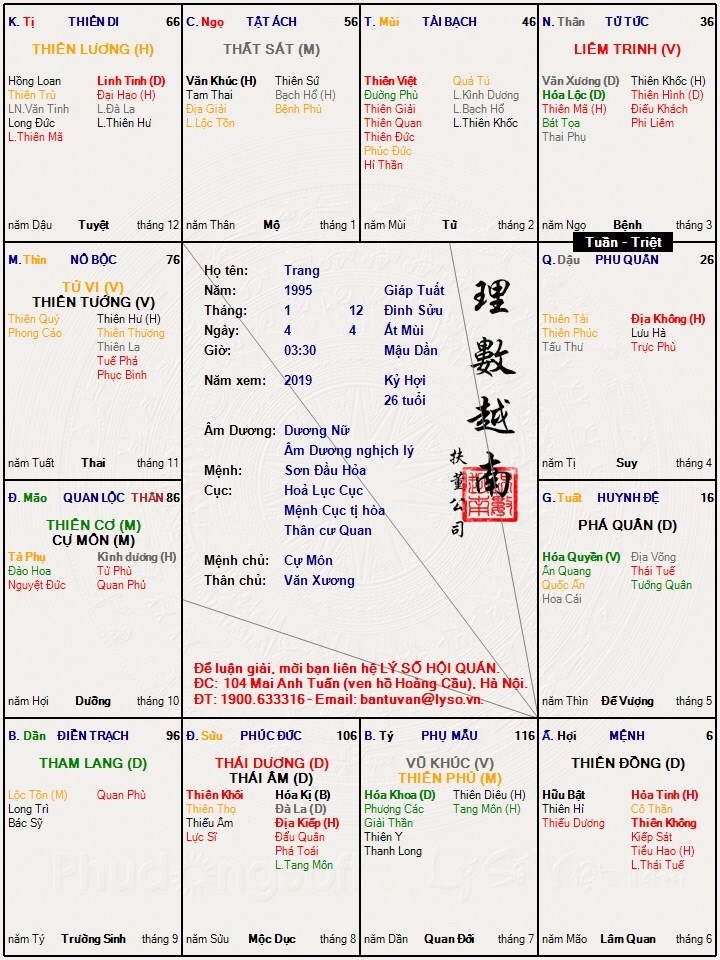 K. Tị THIÊN DI 66
THIÊN LƯƠNG (H)
Hồng Loan Linh Tinh (D)
Thiên Trù Đại Hao (H)
LN.Văn Tinh L.Đà La
Long Đức L.Thiên Hư
L.Thiên Mã
năm Dậu Tuyệt tháng 12
C. Ngọ TẬT ÁCH 56
THẤT SÁT (M)
Văn Khúc (H) Thiên Sứ
Tam Thai Bạch Hổ (H)
Địa Giải Bệnh Phù
L.Lộc Tồn
năm Thân Mộ tháng 1
T. Mùi TÀI BẠCH 46
Thiên Việt Quả Tú
Đường Phù L.Kình Dương
Thiên Giải L.Bạch Hổ
Thiên Quan L.Thiên Khốc
Thiên Đức
Phúc Đức
Hỉ Thần
năm Mùi Tử tháng 2
N. Thân TỬ TỨC 36
LIÊM TRINH (V)
Văn Xương (D) Thiên Khốc (H)
Hóa Lộc (D) Thiên Hình (D)
Thiên Mã (H) Điếu Khách
Bát Tọa Phi Liêm
Thai Phụ
năm Ngọ Bệnh tháng 3
Tuần - Triệt
M. Thìn NÔ BỘC 76
TỬ VI (V)
THIÊN TƯỚNG (V)
Thiên Quý Thiên Hư (H)
Phong Cáo Thiên Thương
Thiên La
Tuế Phá
Phục Binh
năm Tuất Thai tháng 11
Họ tên: Trang
Năm: 1995 Giáp Tuất
Tháng: 1 12 Đinh Sửu
Ngày: 4 4 Ất Mùi
Giờ: 03:30 Mậu Dần
Năm xem: 2019 Kỷ Hợi
26 tuổi
Âm Dương: Dương Nữ
Âm Dương nghịch lý
Mệnh: Sơn Đầu Hỏa
Cục: Hoả Lục Cục
Mệnh Cục tị hòa
Thân cư Quan
Mệnh chủ: Cự Môn
Thân chủ: Văn Xương
理數越南
扶董公司
Để luận giải, mời bạn liên hệ LÝ SỐ HỘI QUÁN.
ĐC: 104 Mai Anh Tuấn (ven hồ Hoàng Cầu), Hà Nội.
ĐT: 1900.633316 - Email: bantuvan@lyso.vn.
Q. Dậu PHU QUÂN 26
Thiên Tài Địa Không (H)
Thiên Phúc Lưu Hà
Tấu Thư Trực Phù
năm Tị Suy tháng 4
Đ. Mão QUAN LỘC THÂN 86
THIÊN CƠ (M)
CỰ MÔN (M)
Tả Phụ Kình dương (H)
Đào Hoa Tử Phù
Nguyệt Đức Quan Phủ
năm Hợi Dưỡng tháng 10
G. Tuất HUYNH ĐỆ 16
PHÁ QUÂN (D)
Hóa Quyền (V) Địa Võng
Ân Quang Thái Tuế
Quốc Ấn Tướng Quân
Hoa Cái
năm Thìn Đế Vượng tháng 5
B. Dần ĐIỀN TRẠCH 96
THAM LANG (D)
Lộc Tồn (M) Quan Phù
Long Trì
Bác Sỹ
năm Tý Trường Sinh tháng 9
Đ. Sửu PHÚC ĐỨC 106
THÁI DƯƠNG (D)
THÁI ÂM (D)
Thiên Khôi Hóa Kị (B)
Thiên Thọ Đà La (D)
Thiếu Âm Địa Kiếp (H)
Lực Sĩ Đẩu Quân
Phá Toái
L.Tang Môn
năm Sửu Mộc Dục tháng 8
B. Tý PHỤ MẪU 116
VŨ KHÚC (V)
THIÊN PHỦ (M)
Hóa Khoa (D) Thiên Diêu (H)
Phượng Các Tang Môn (H)
Giải Thần
Thiên Y
Thanh Long
năm Dần Quan Đới tháng 7
Ấ. Hợi MỆNH 6
THIÊN ĐỒNG (D)
Hữu Bật Hỏa Tinh (H)
Thiên Hỉ Cô Thần
Thiếu Dương Thiên Không
Kiếp Sát
Tiểu Hao (H)
L.Thái Tuế
năm Mão Lâm Quan tháng 6